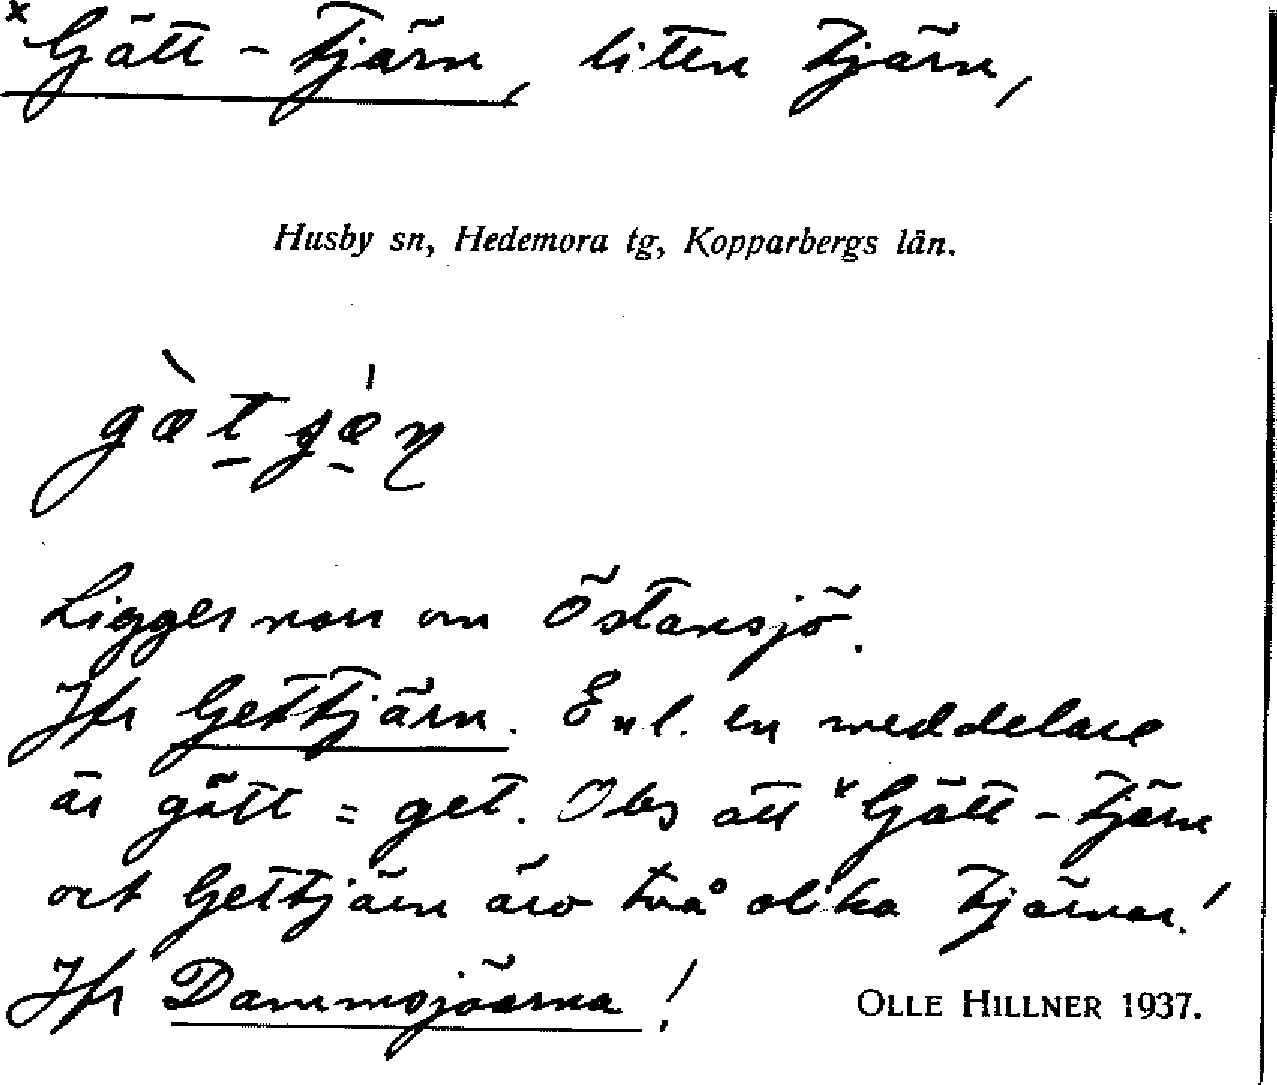 *Gätt-tjärn, liten tjärn,
Husby sn, Hedemora tg, Kopparbergs län.
Ligger norr om Östansjö.
Jfr Gettjärn. Enl. en meddelare
är gätt = get. Obs att *Gätt-tjärn
och Gettjärn äro två olika tjärnar!
Jfr Dammsjöarna!
OLLE HILLNER 1937.